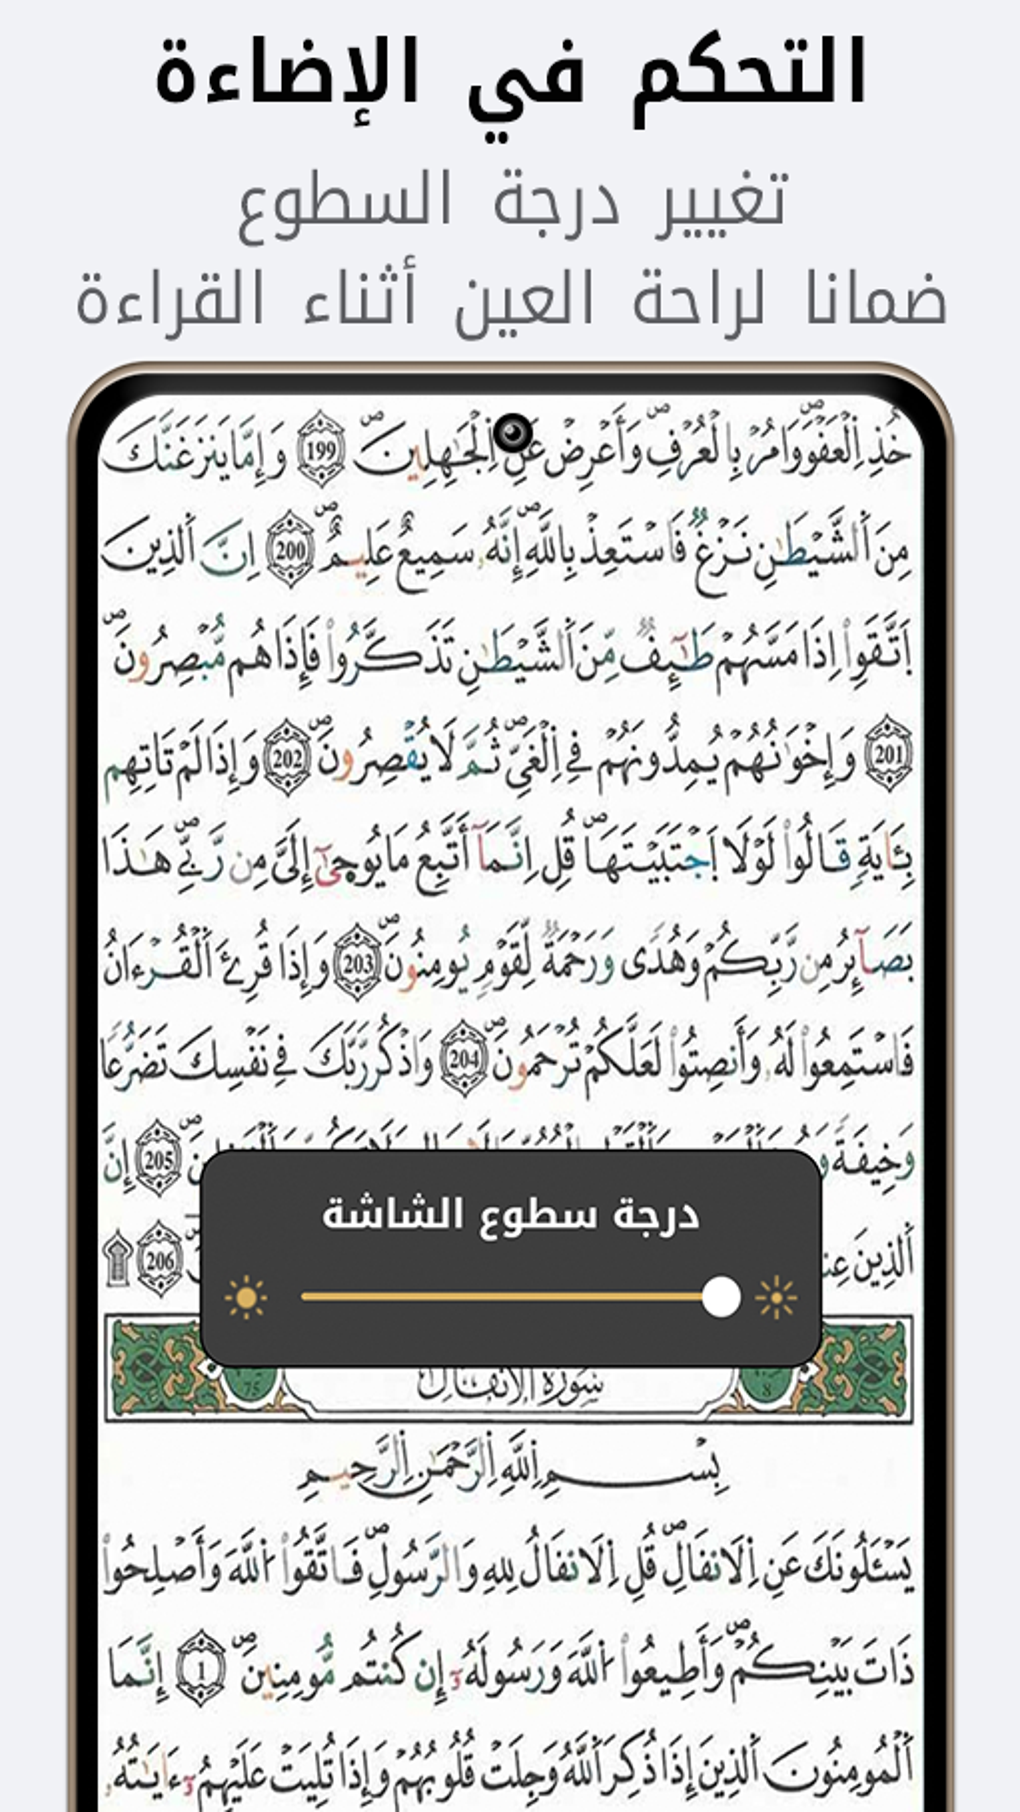 التحكم في الإضاءة
تغيير درجة السطوع
ضمانا لراحة العين أثناء القراءة
خُذِ اِ۬لْعَفْوَ وَامُرْ بِالْعُرْفِ وَأَعْرِضْ عَنِ اِ۬لْجَٰهِلِينَۖ 199 وَإِمَّا يَنزَغَنَّكَ
مِنَ اَ۬لشَّيْطَٰنِ نَزْغٌ فَاسْتَعِذْ بِاللَّهِۖ إِنَّهُۥ سَمِيعٌ عَلِيمٌۖ 200 اِنَّ اَ۬لذِينَ
اَ۪تَّقَوِاْ اِذَا مَسَّهُمْ طَٰٓئِفٞ مِّنَ اَ۬لشَّيْطَٰنِ تَذَكَّرُواْ فَإِذَا هُم مُّبْصِرُونَۖ
201 وَإِخْوَٰنُهُمْ يُمِدُّونَهُمْ فِے اِ۬لْغَيِّۖ ثُمَّ لَا يُقْصِرُونَۖ 202 وَإِذَا لَمْ تَاتِهِم
بِـَٔايَةٖ قَالُواْ لَوْلَا اَ۪جْتَبَيْتَهَاۖ قُلِ اِنَّمَآ أَتَّبِعُ مَا يُوح۪ىٰٓ إِلَيَّ مِن رَّبِّےۖ هَٰذَا
بَصَآئِرُ مِن رَّبِّكُمْ وَهُدىٗ وَرَحْمَةٞ لِّقَوْمٖ يُومِنُونَۖ 203 وَإِذَا قُرِۓَ اَ۬لْقُرْءَانُ
فَاسْتَمِعُواْ لَهُۥ وَأَنصِتُواْ لَعَلَّكُمْ تُرْحَمُونَۖ 204 وَاذْكُر رَّبَّكَ فِے نَفْسِكَ تَضَرُّعاٗ
وَخِيفَةٗ 205 إِنَّ
اَ۬لذِينَ 206
درجة سطوع الشاشة
75 سُورَةُ اُ۬لَانفَالِ 8
بِسْمِ اِ۬للَّهِ اِ۬لرَّحْمَٰنِ اِ۬لرَّحِيمِ
يَسْـَٔلُونَكَ عَنِ اِ۬لَانفَالِۖ قُلِ اِ۬لَانفَالُ لِلهِ وَالرَّسُولِۖ فَاتَّقُواْ اُ۬للَّهَ وَأَصْلِحُواْ
ذَاتَ بَيْنِكُمْۖ وَأَطِيعُواْ اُ۬للَّهَ وَرَسُولَهُۥٓ إِن كُنتُم مُّومِنِينَۖ 1 إِنَّمَا
اَ۬لْمُومِنُونَ اَ۬لذِينَ إِذَا ذُكِرَ اَ۬للَّهُ وَجِلَتْ قُلُوبُهُمْ وَإِذَا تُلِيَتْ عَلَيْهِمُۥٓ ءَايَٰتُهُۥ